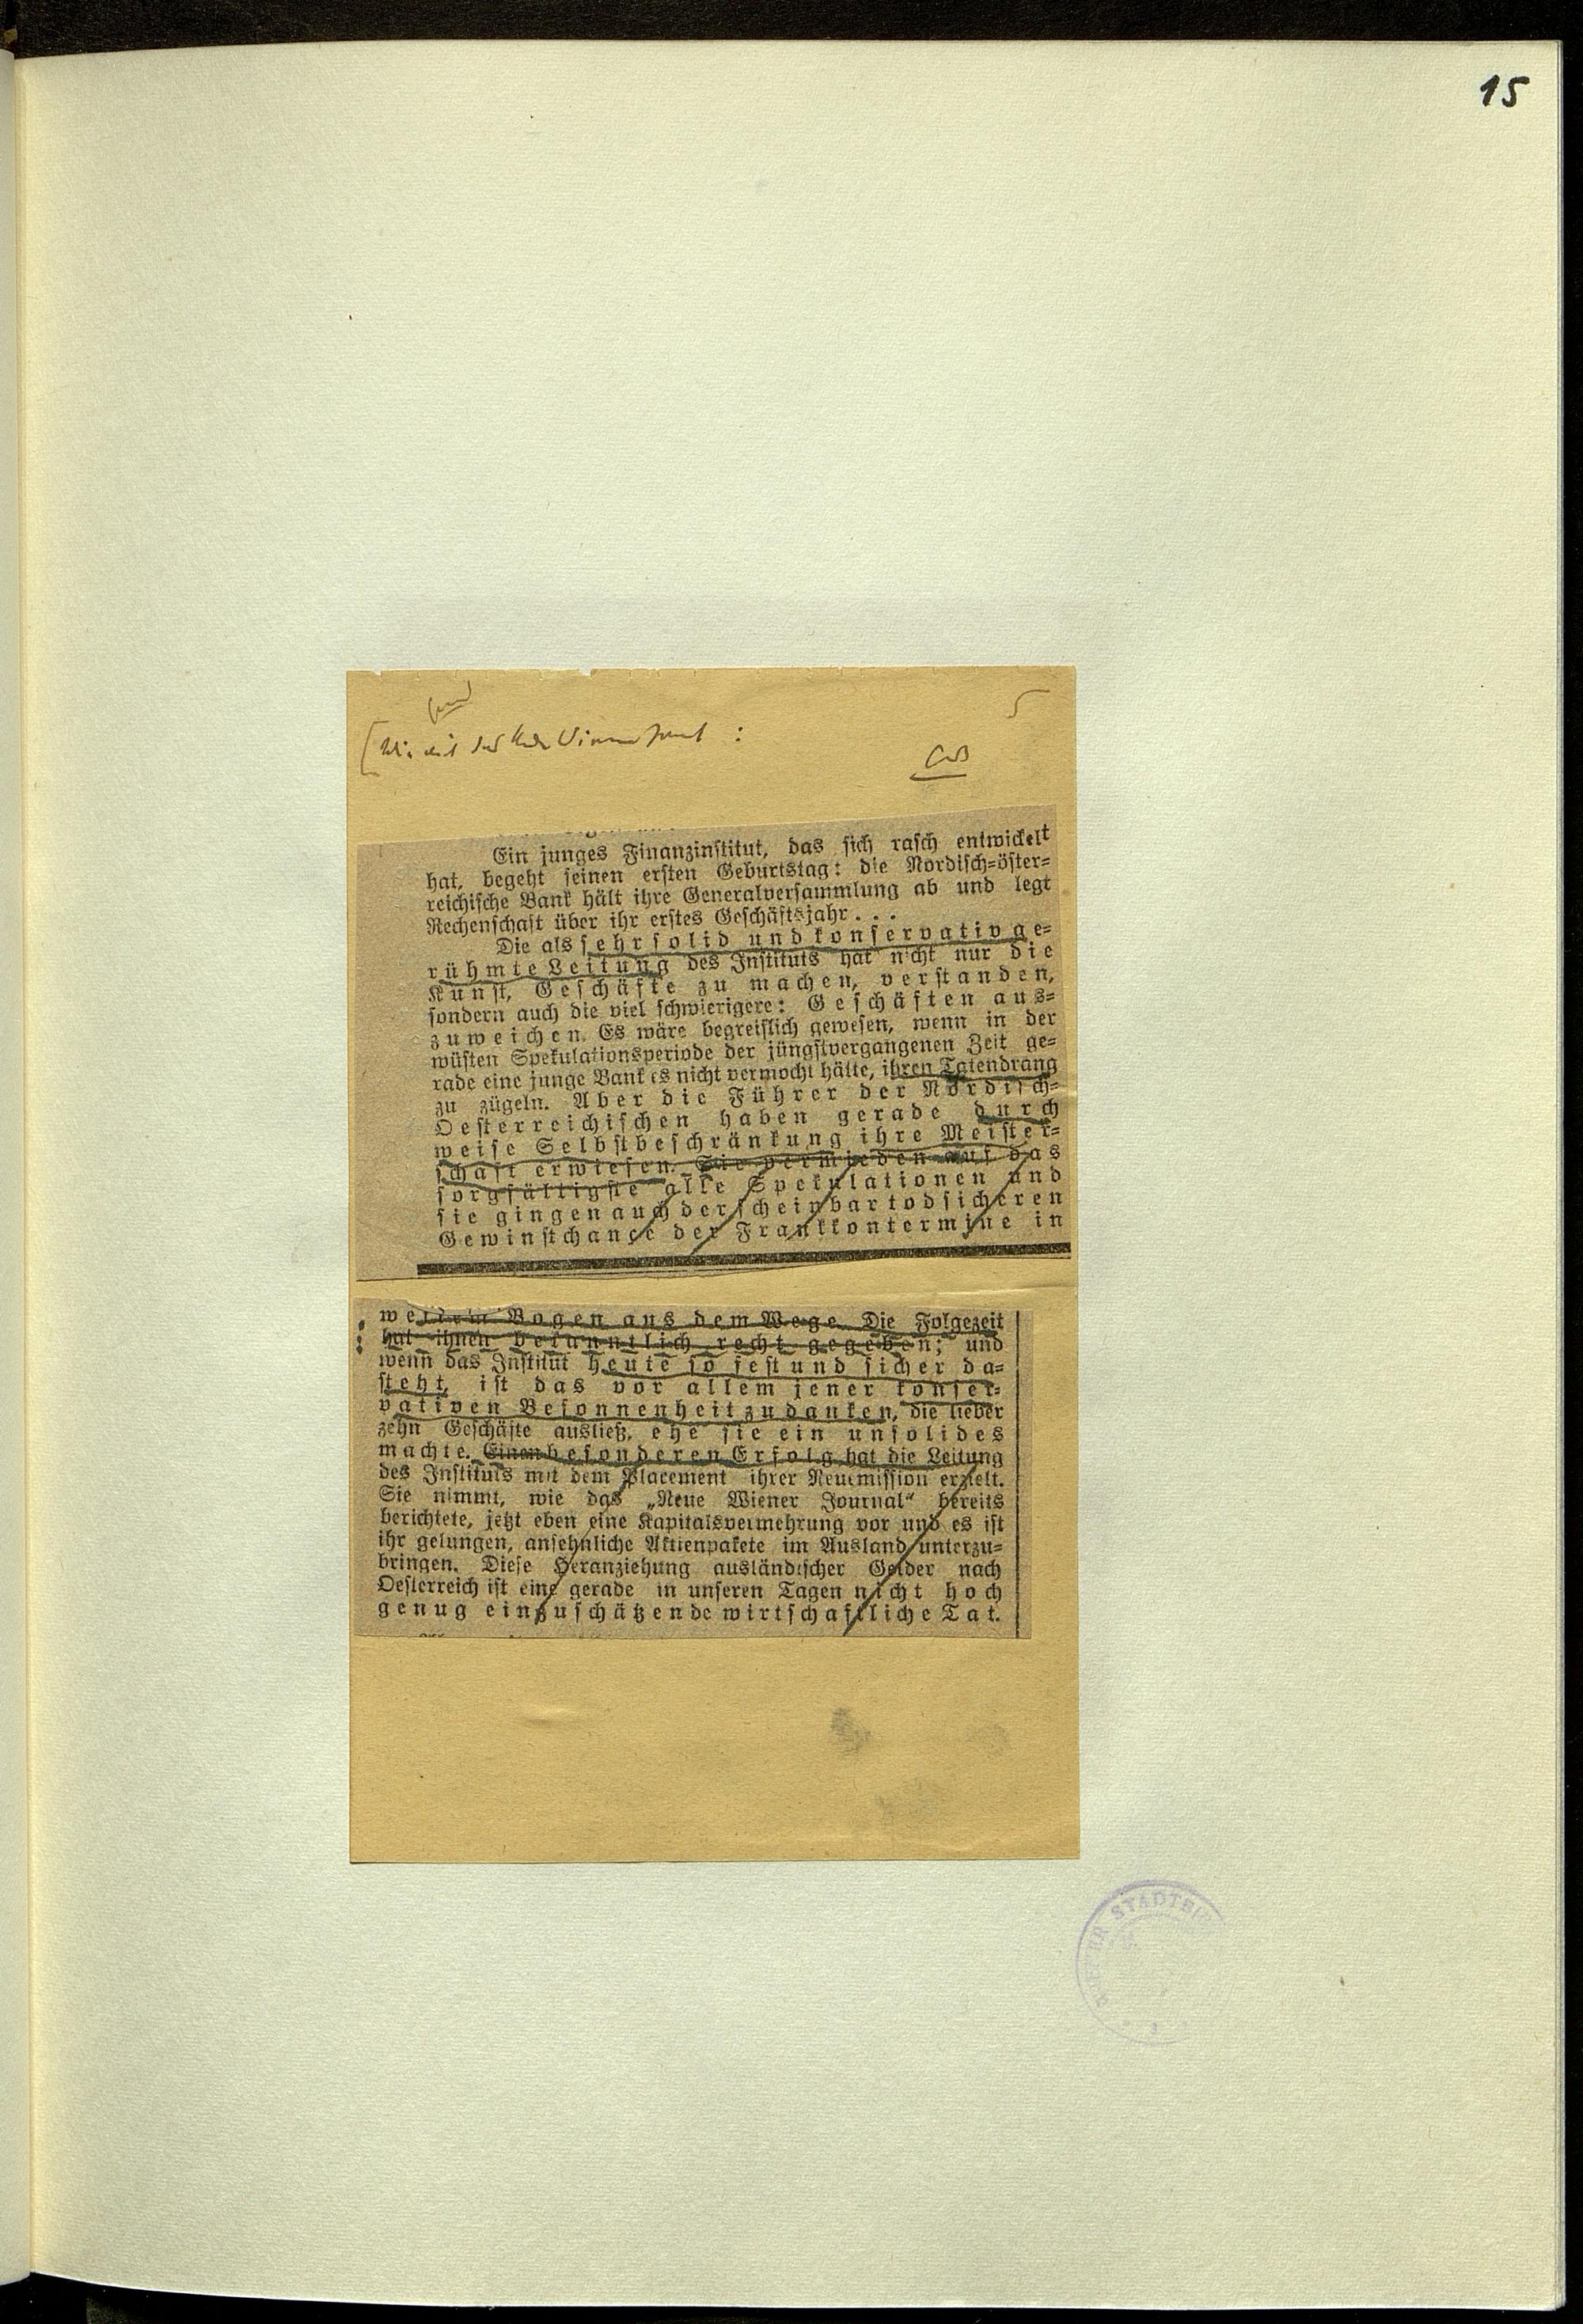 15
5
:
Ein junges Finanzinstitut, das sich rasch entwickelt
hat, begeht seinen ersten Geburtstag: die Nordisch-öster-
reichische Bank hält ihre Generalversammlung ab und legt
Rechenschaft über ihr erstes Geschäftsjahr...
Die als sehr solid und konservativ ge-
rühmte Leitung des Instituts hat nicht nur die
Kunst, Geschäfte zu machen, verstanden,
sondern auch die viel schwierigere: Geschäften aus-
zuweichen. Es wäre begreiflich gewesen, wenn in der
wüsten Spekulationsperiode der jüngstvergangenen Zeit ge-
rade eine junge Bank es nicht vermocht hätte, ihren Tatendrang
zu zügeln. Aber die Führer der Nordisch-
Oesterreichischen haben gerade durch
weise Selbstbeschränkung ihre Meister-
schaft erwiesen. Sie vermieden auf das
sorgfältigste alle Spekulationen und
sie gingen auch der scheinbar todsicheren
Gewinstchance der Frankkontermine in
weitem Bogen aus dem Wege. Die Folgezeit
hat ihnen bekanntlich recht gegeben; und
wenn das Institut heute so fest und sicher da-
steht, ist das vor allem jener konser-
vativen Besonnenheit zu danken, die lieber
zehn Geschäfte ausließ, ehe sie ein unsolides
machte. Einen besonderen Erfolg hat die Leitung
des Instituts mit dem Placement ihrer Neuemission erzielt.
Sie nimmt, wie das „Neue Wiener Journal" bereits
berichtete, jetzt eben eine Kapitalsvermehrung vor und es ist
ihr gelungen, ansehnliche Aktienpakete im Ausland unterzu-
bringen. Diese Heranziehung ausländischer Gelder nach
Oesterreich ist eine gerade in unseren Tagen nicht hoch
genug einzuschätzende wirtschaftliche Tat.